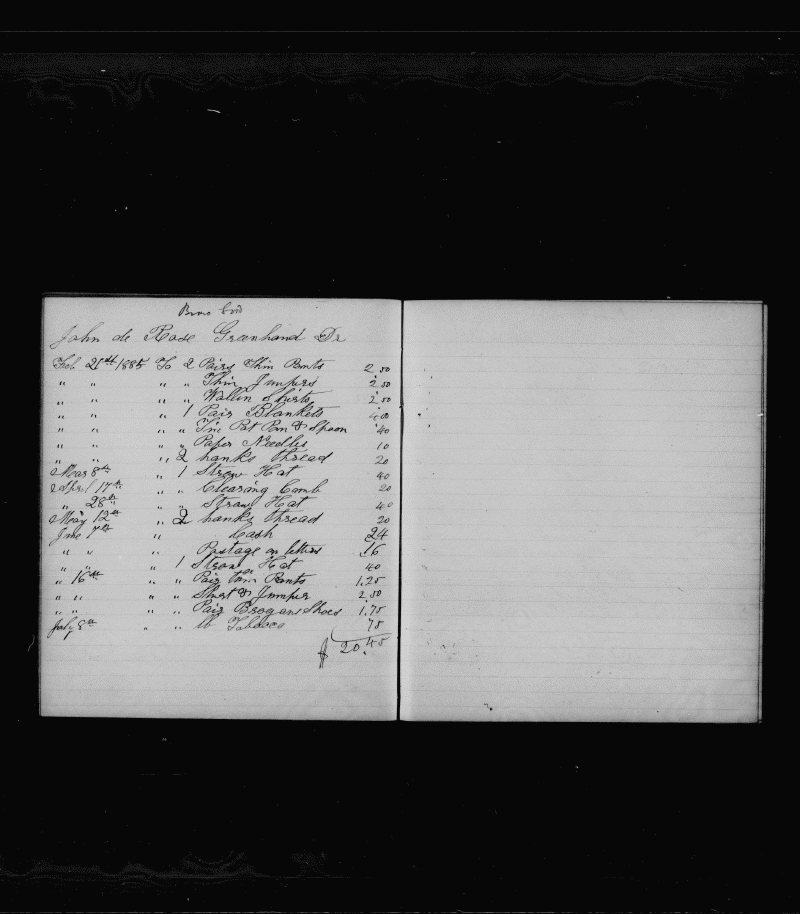 John de Rose Greenhand Dr
Feb 21st 1885 To 2 Pairs Thin Pants 2 50
" " " " Thin Jumpers 2 50
" " " " Wollin Shirts 2 50
" " " 1 Pair Blankets 4 00
" " " " Tin Pot Pan & Spoon 40
" " " " Paper Needles 10
" " " 2 hanks thread 20
Mar 8th " 1 Straw Hat 40
April 17th " " Clearing Comb 20
" 28th " " Straw Hat 40
May 12th " 2 hanks thread 20
June 7th " Cash 24
" " " Postage on letters 16
" " " 1 Straw Hat 40
" 16th " " Pair thin Pants 1.25
" " " " Shirt & Jumper 2 50
" " " " Pair Brogans Shoes 1.75
July 8th " " lb Tobacco 75
$ 20.45